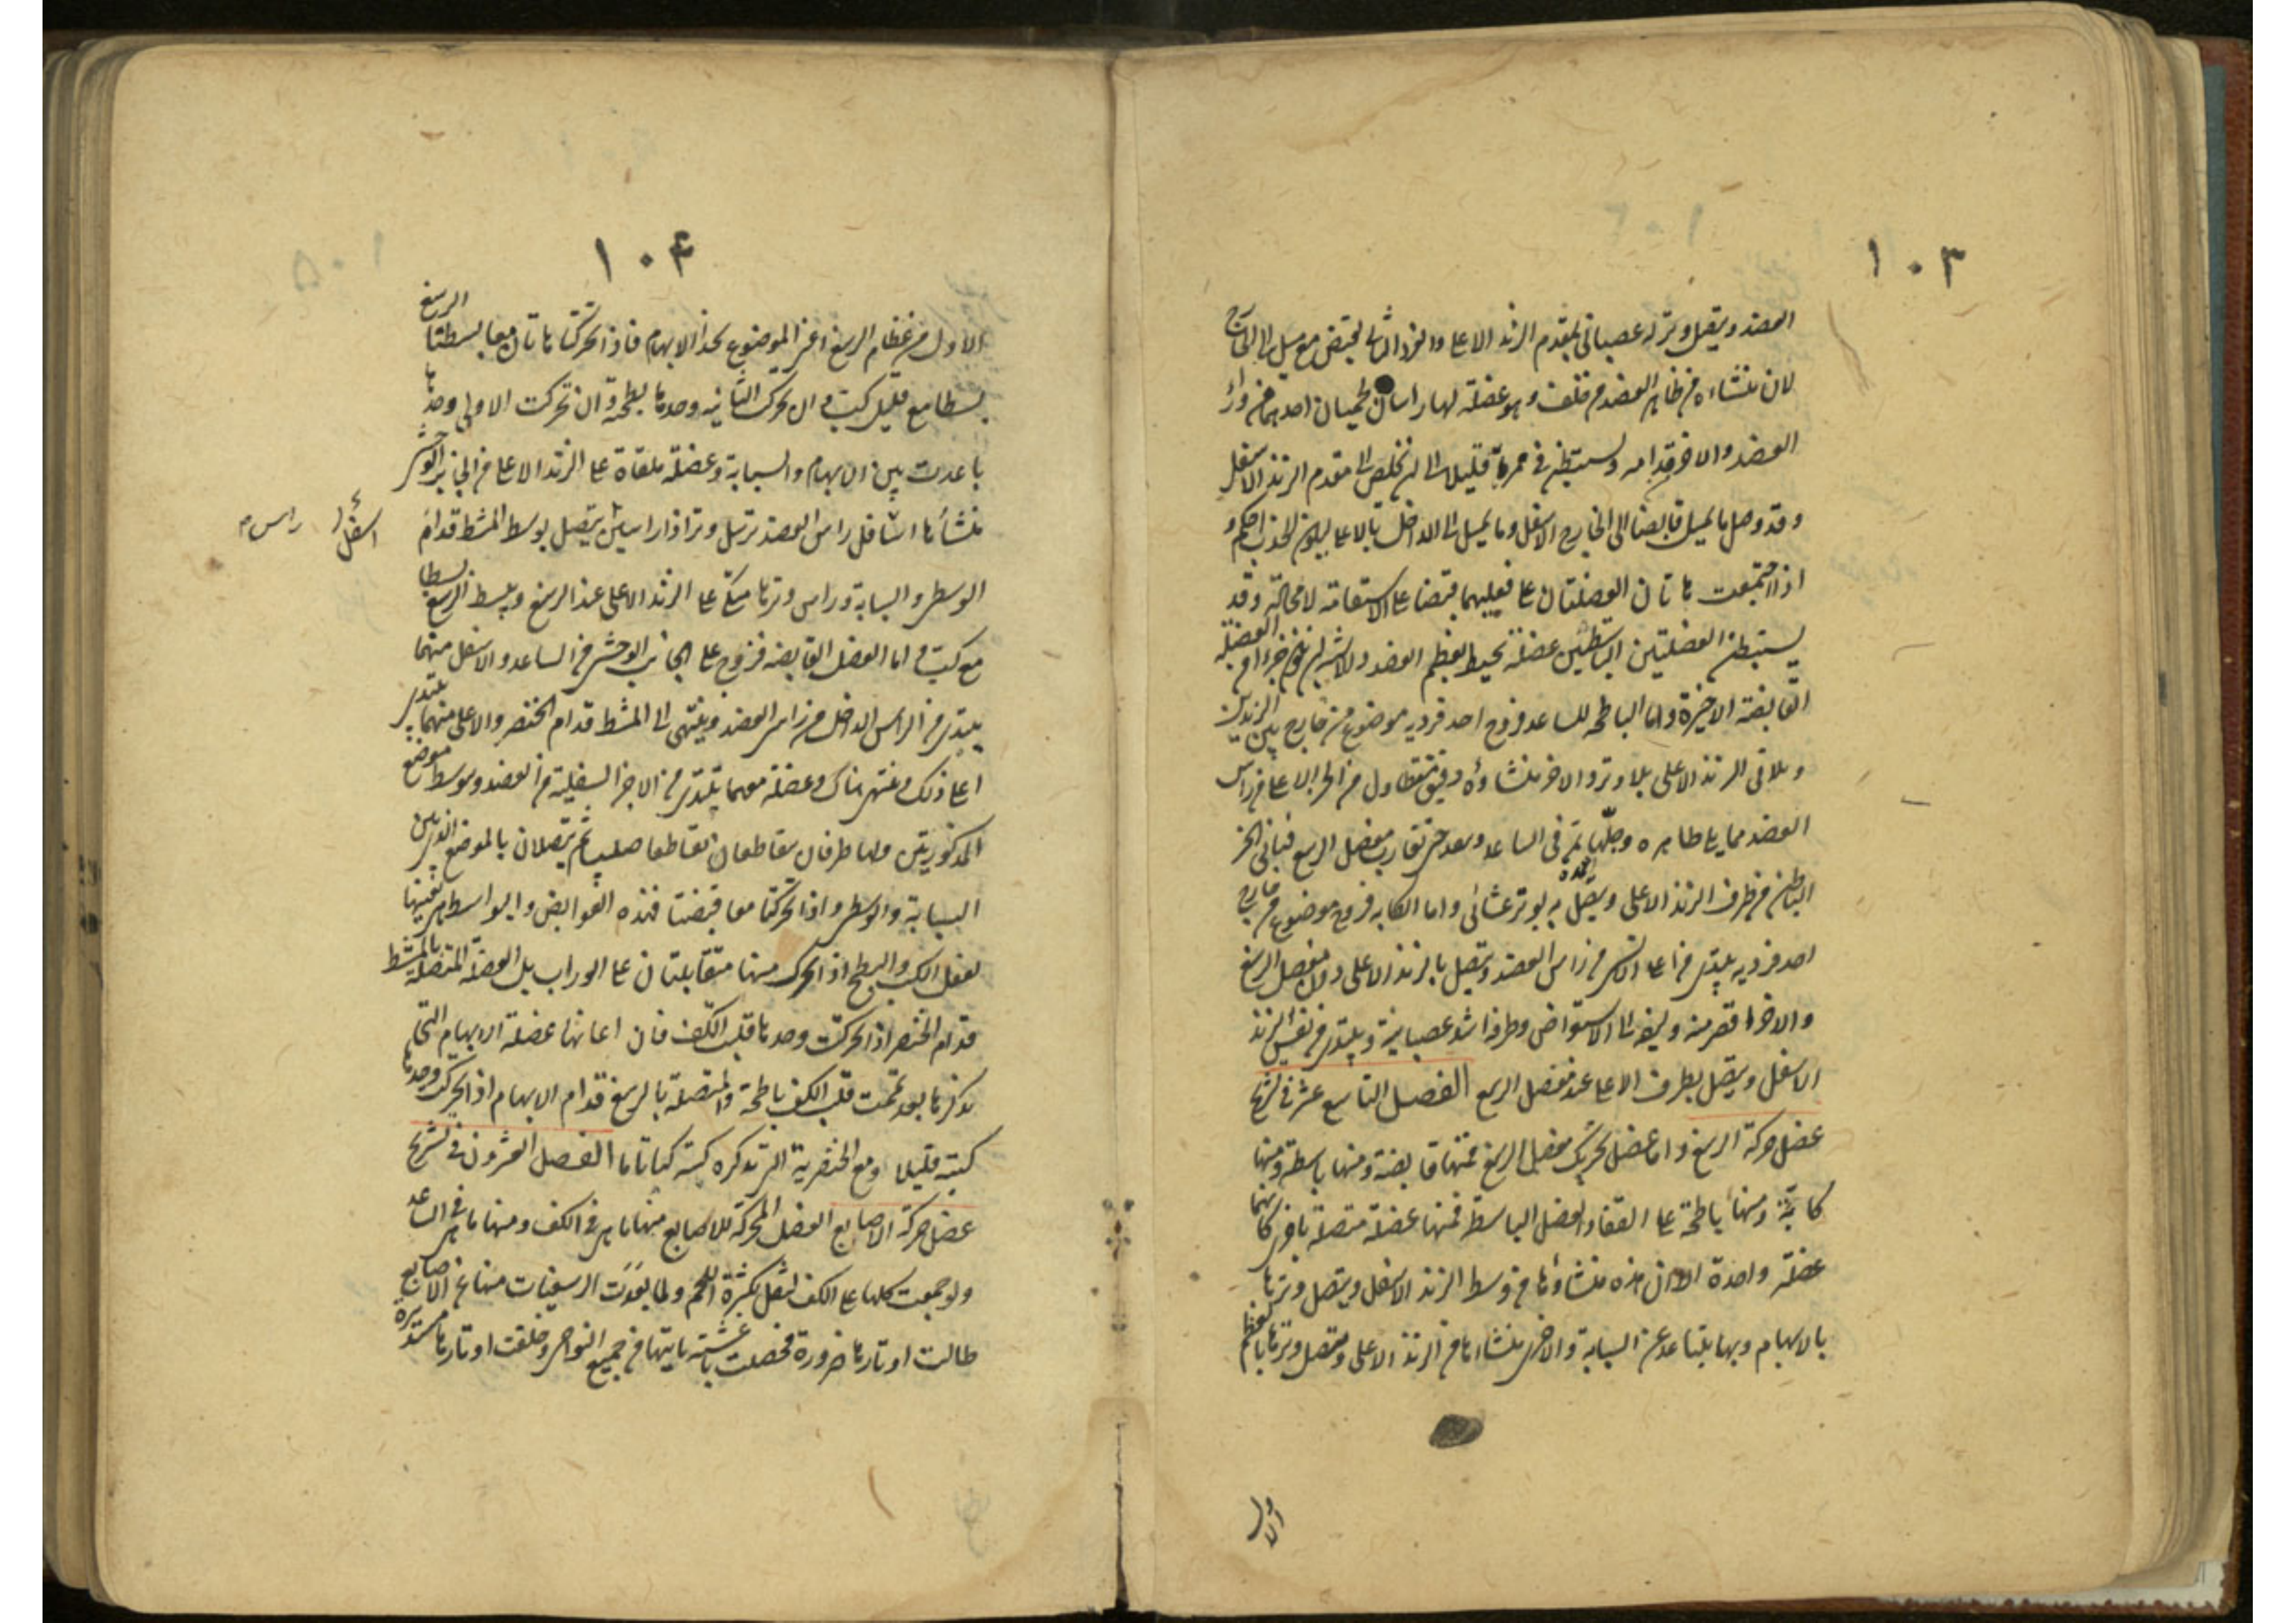 ١٠٣
العضد ويتصل وتر له عصبانى بمقدم الزند الاعلى والفرد الثانى يقبض مع ميل الى الخارج
لان منشاءه من ظاهر العضد من خلف وهو عضلة لها راسان لحميان احدهما من وراء
العضد والاخر قدامه ويستبطن فى ممره قليلا الى ان يخلص الى مقدم الزند الاسفل
وقد وصل ما يميل قابضا الى الخارج الاسفل وما يميل الى الداخل بالاعلى ليكون الجذب احكم و
اذا اجتمعت هاتان العضلتان على فعليهما قبضتا على الاستقامة لا محالة وقد
يستبطن العضلتين الباسطتين عضلة تحيط بعظم العضد والاشبه ان تكون جزءا من العضلة
القابضة الاخيرة واما الباطحة للساعد فزوج احد فرديه موضوع من خارج بين الزندين
ويلاقى الزند الاعلى بلا وتر والاخر منشاؤه رقيق متطاول من الجزء الاعلى من راس
العضد مما يلى ظاهره وجلها يمر فى الساعد وينفذ حتى تقارب مفصل الرسغ فياتى الجزء
الباطن من طرف الزند الاعلى ويتصل به بوتر غشائى واما الكابه فزوج موضوع من خارج
احد فرديه يبتدى من اعلى الانسى من راس العضد ويتصل بالزند الاعلى دون مفصل الرسغ
والاخر اقصر منه وليفه الى الاستعراض وطرفه اشد عصبانية ويبتدى من نفس الزند
الاسفل ويتصل بطرف الاعلى عند مفصل الرسغ الفصل التاسع عشر فى تشريح
عضل حركة الرسغ واما عضل تحريك مفصل الرسغ فمنها قابضة ومنها باسطة ومنها
كابة ومنها باطحة على القفا والعضل الباسطة فمنها عضلة متصلة باخرى كانهما
عضلة واحدة الا ان هذه منشاؤها من وسط الزند الاسفل ويتصل وترها
بالابهام وبها يتباعد عن السبابة والاخرى منشاءها من الزند الاعلى ويتصل وترها بالعظم
الاول
١٠٤
الاول من عظام الرسغ اعنى الموضوع بحذا الابهام فاذا تحركتا هاتان معا بسطتا الرسغ
بسطا مع قليل كب وان تحركت الثانيه وحدها بطحته وان تحركت الاولى وحدها
باعدت بين الابهام والسبابة وعضلة ملقاة على الزند الاعلى من الجانب الوحشى
منشأها اسافل راس العضد ترسل وترا ذا راسين يتصل بوسط المشط قدام
اسفل راس
الوسطى والسبابة وراس وترها متكئ على الزند الاعلى عند الرسغ ويبسط الرسغ بسطا
مع كب واما العضل القابضه فزوج على الجانب الوحشى من الساعد والاسفل منهما
يبتدى من الراس الداخل من راس العضد وينتهى الى المشط قدام الخنصر والاعلى منهما يبتدى
اعلى ذلك وينتهى هناك وعضلة معهما تبتدى من الاجزا السفلية من العضد وتتوسط موضع
المذكورتين ولها طرفان يتقاطعان تقاطعا صليبيا ثم يتصلان بالموضع الذى بين
السبابة والوسطى واذا تحركتا معا قبضتا فهذه القوابض والبواسط هى بعينها
تفعل الكب والبطح اذا تحرك منها متقابلتان على الوراب بل العضلة المتصلة بالمشط
قدام الخنصر اذا تحركت وحدها قلبت الكف فان اعانها عضلة الابهام التى
نذكرها بعد تممت قلب الكف باطحة والمتصلة بالرسغ قدام الابهام اذا تحركت وحدها
كبته قليلا ومع الخنصرية التى نذكره كبته كبا تاما الفصل العشرون فى تشريح
عضل حركة الاصابع العضل المحركة للاصابع منها ما هى فى الكف ومنها ما هى فى الساعد
ولو جمعت كلها على الكف لثقل بكثرة اللحم ولما بعدت الرسغيات منها عن الاصابع
طالت اوتارها ضرورة فحصنت باغشية ياتيها من جميع النواحى وخلقت اوتارها مستديرة